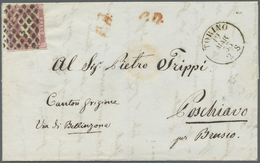 P.D.
TORINO
Al Sig. Pietro Trippi
Canton grigione
Poschiavo
Via di Bellinzona
per Brusio.